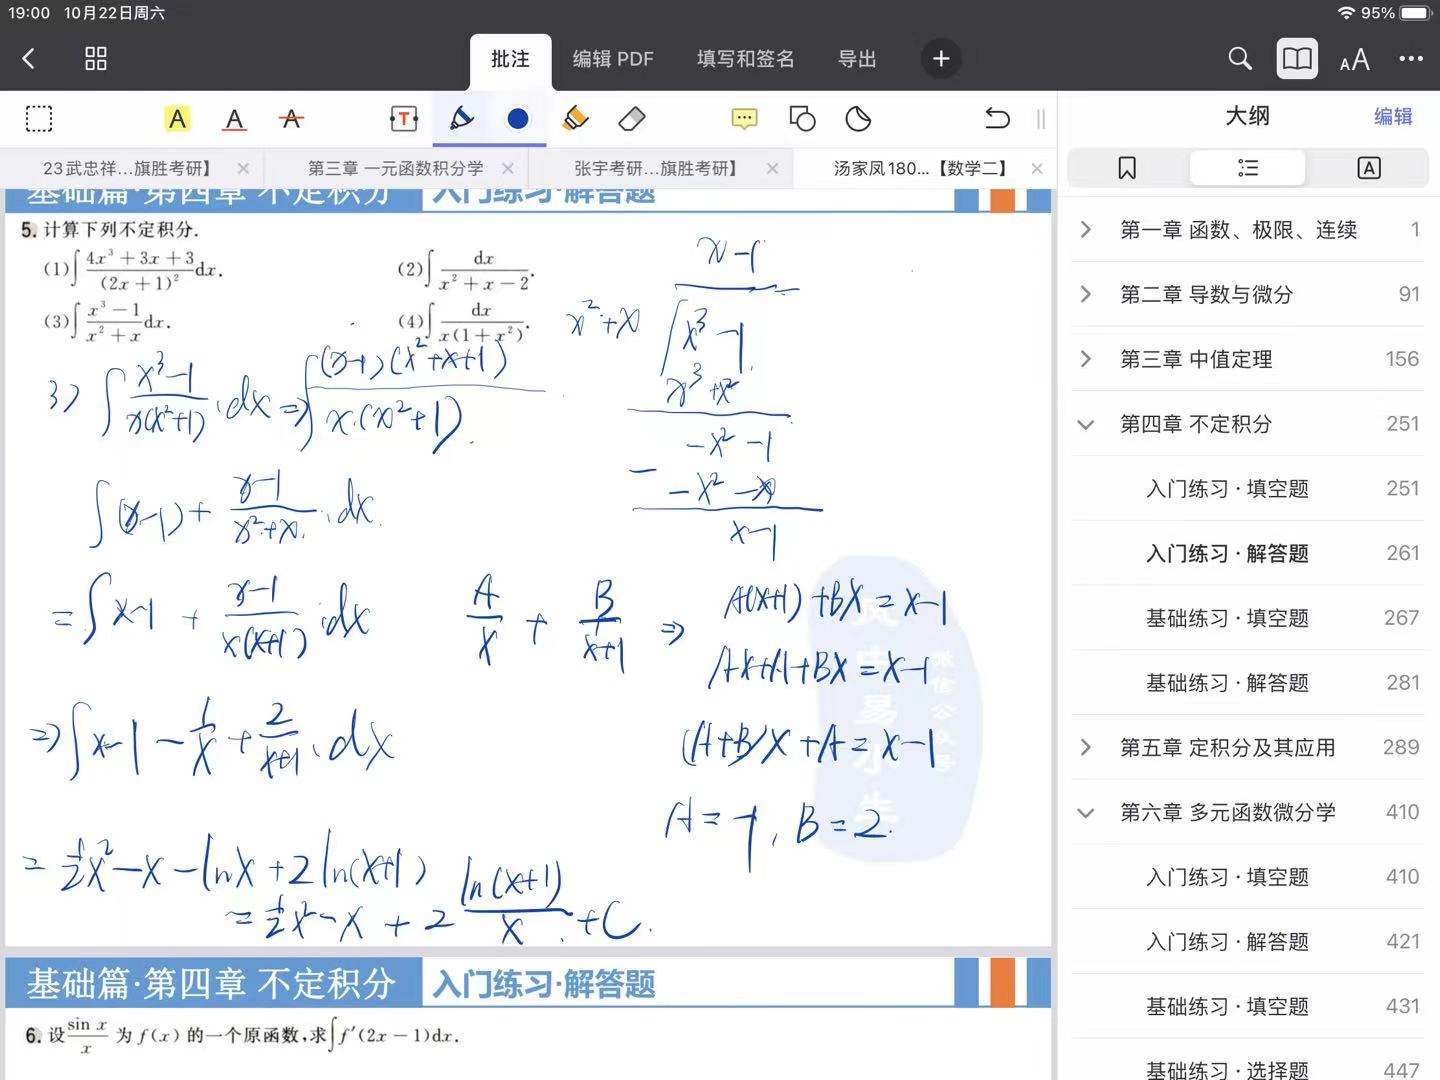 19:00 10月22日周六 95%
批注 编辑 PDF 填写和签名 导出
A A A T
23武忠祥...旗胜考研】 第三章 一元函数积分学 张宇考研...旗胜考研】 汤家凤180...【数学二】
基础篇·第四章 不定积分 入门练习·解答题
5. 计算下列不定积分.
(1)∫(4x³+3x+3)/(2x+1)² dx. (2)∫dx/(x²+x−2).
(3)∫(x³−1)/(x²+x) dx. (4)∫dx/(x(1+x²)).
x−1
x²+x √(x³−1
x³+x²
−x²−1
− −x²−x
x−1
3) ∫(x³−1)/(x(x²+1)) ·dx ⇒ ∫(x−1)(x²+x+1)/(x·(x²+1)).
∫(x−1)+(x−1)/(x²+x) ·dx.
=∫x−1+(x−1)/(x(x+1)) ·dx A/x + B/(x+1) ⇒ A(x+1)+BX=x−1
AX+A+BX=x−1
⇒∫x−1−1/x+2/(x+1) ·dx (A+B)X+A=x−1
A=−1, B=2.
=½x²−x−lnx+2ln(x+1)
=½x²−x+2 ln(x+1)/x +C.
基础篇·第四章 不定积分 入门练习·解答题
6. 设 sin x/x 为 f(x) 的一个原函数,求∫f′(2x−1)dx.
大纲 编辑
A
第一章 函数、极限、连续 1
第二章 导数与微分 91
第三章 中值定理 156
第四章 不定积分 251
入门练习·填空题 251
入门练习·解答题 261
基础练习·填空题 267
基础练习·解答题 281
第五章 定积分及其应用 289
第六章 多元函数微分学 410
入门练习·填空题 410
入门练习·解答题 421
基础练习·填空题 431
基础练习·选择题 447